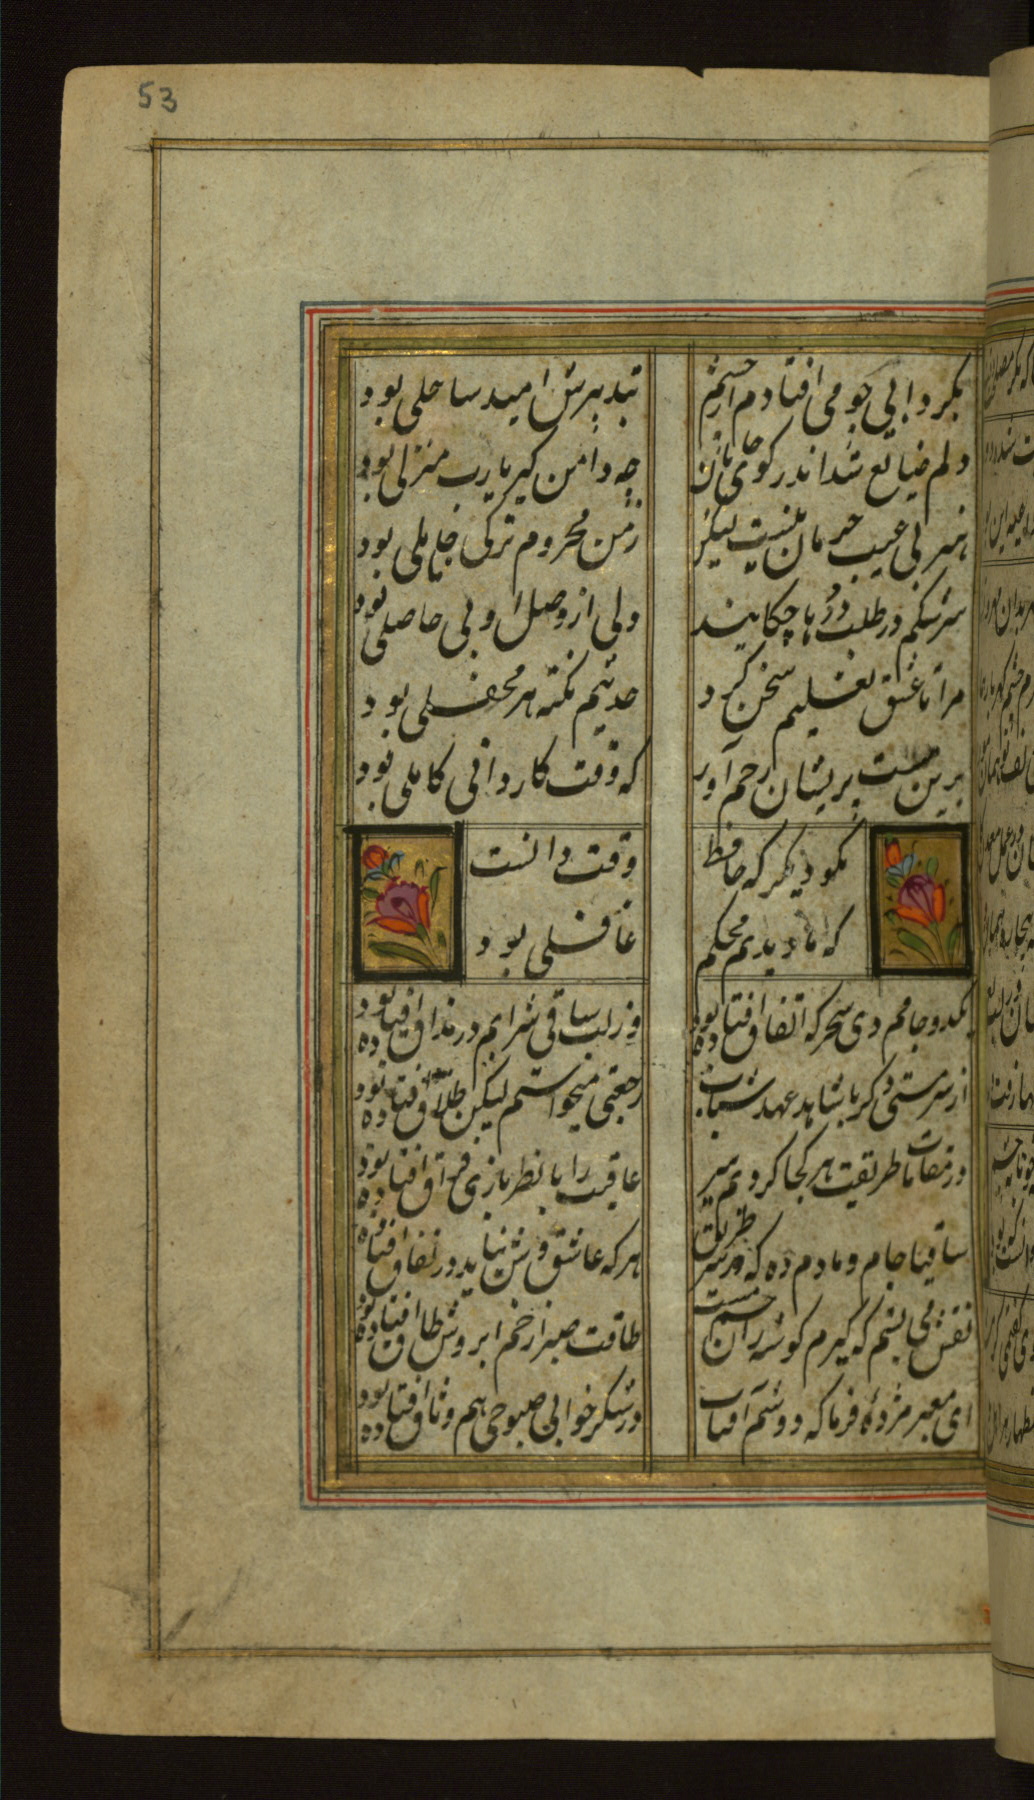 53
بگردابی چو می افتادم از چشم
بتدبیرش امید ساحلی بود
دلم ضایع شد اندر کوی جانان
چه دامن گیر یارب منزلی بود
هنر بی عیب حرمان نیست لیکن
ز من محروم‌تر کی جاملی بود
سرشکم در طلب درها چکانید
ولی از وصل او بی حاصلی بود
مرا تا عشق تعلیم سخن کرد
حدیثم نکته هر محفلی بود
برین مست پریشان رحم آور
که وقت کاردانی کاملی بود
مگو دیگر که حافظ
وقت دانست
که ما دیدیم محکم
غافلی بود
یکدو جامم دی سحرگه اتفاق افتاده بود
وز لب ساقی شرابم در مذاق افتاده بود
از سر مستی دگر با شاهد عهد شباب
رجعتی میخواستم لیکن طلاق افتاده بود
در مقامات طریقت هر کجا کردیم سیر
عاقبت را با نظربازی فراق افتاده بود
ساقیا جام دمادم ده که در سیر طریق
هر که عاشق وش نیاید در نفاق افتاده بود
نقش می بستم که گیرم گوشه زان چشم مست
طاقت صبر از خم ابروش طاق افتاده بود
ای معبر مژده فرما که دوشم آفتاب
در شکر خواب صبوحی هم وثاق افتاده بود